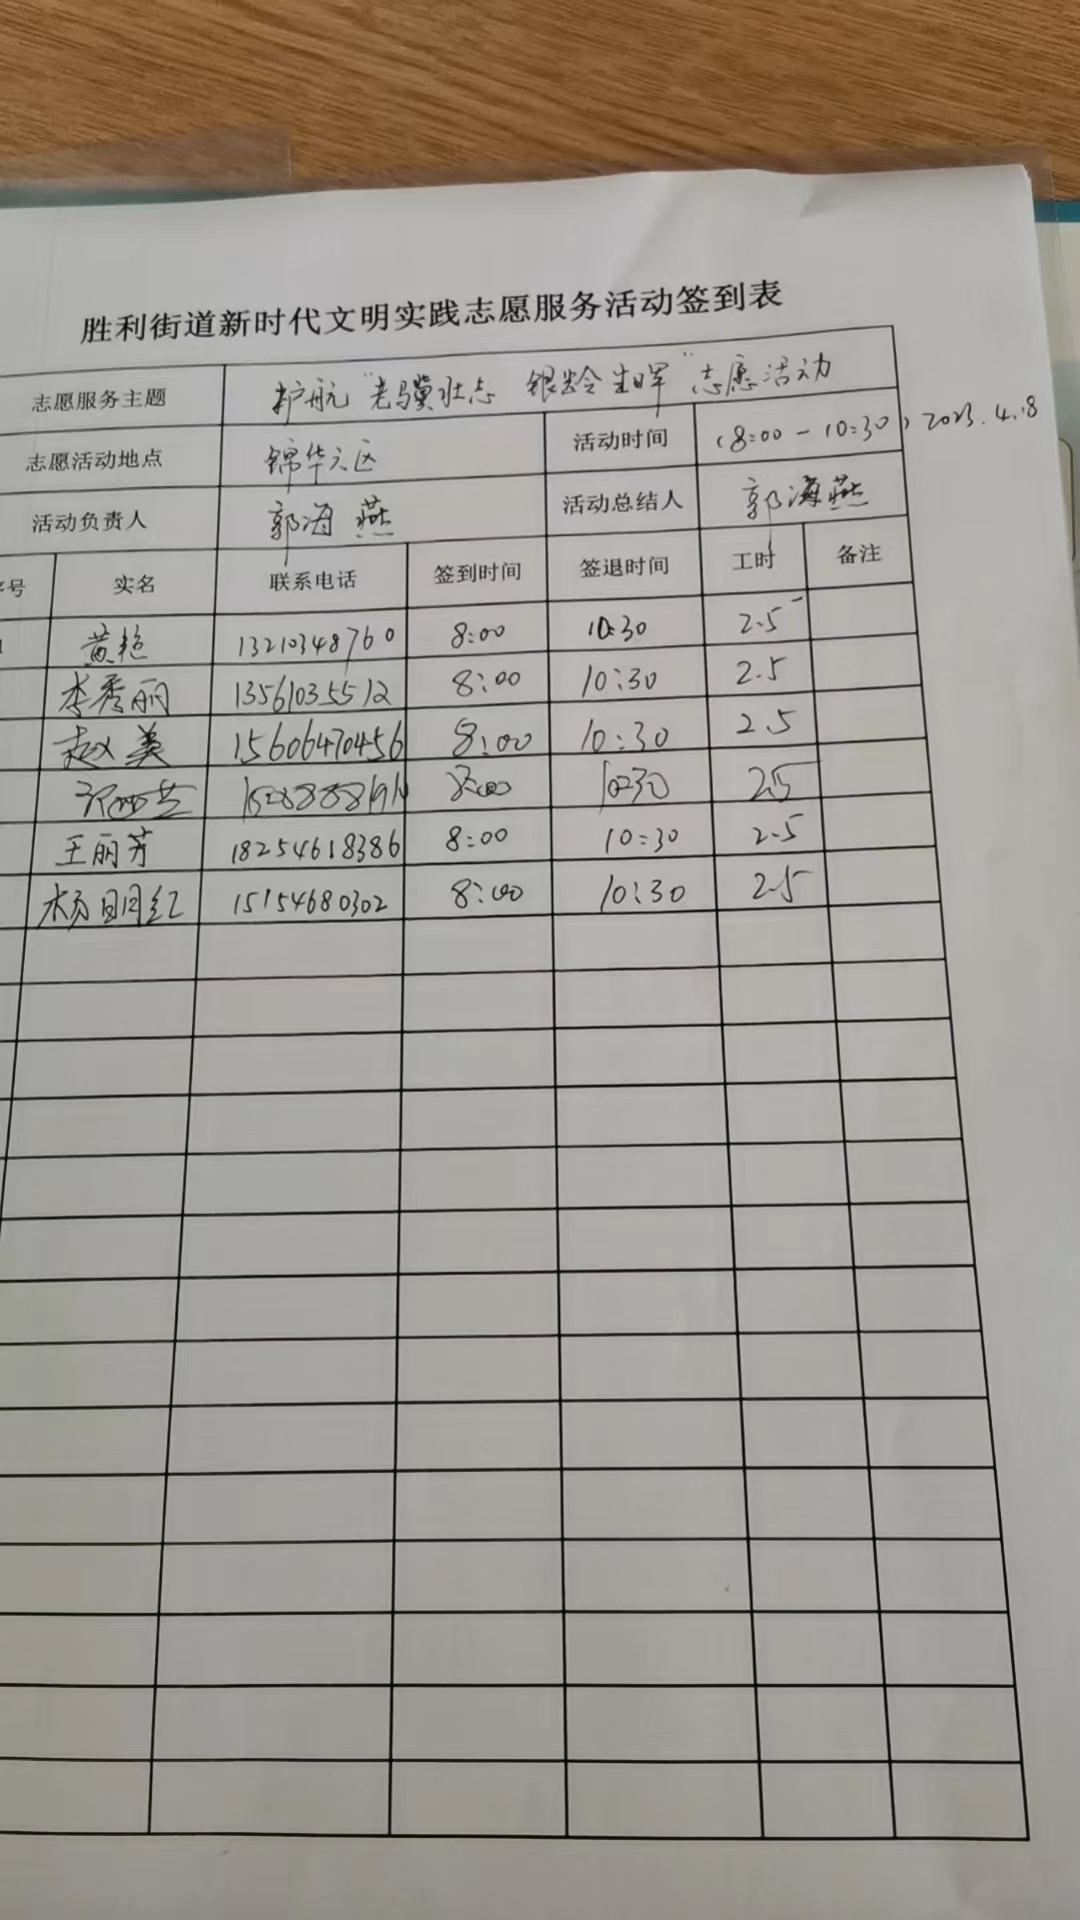 胜利街道新时代文明实践志愿服务活动签到表
志愿服务主题 护航“老骥壮志 银龄生晖”志愿活动
志愿活动地点 锦华六区 活动时间 (8:00-10:30) 2023.4.18
活动负责人 郭海燕 活动总结人 郭海燕
号 实名 联系电话 签到时间 签退时间 工时 备注
1 黄艳 13210348760 8:00 10:30 2.5
李秀丽 13561035512 8:00 10:30 2.5
赵义美 15606470456 8:00 10:30 2.5
8:00 10:30 2.5
王丽芳 18254618386 8:00 10:30 2.5
杨明红 15154680302 8:00 10:30 2.5